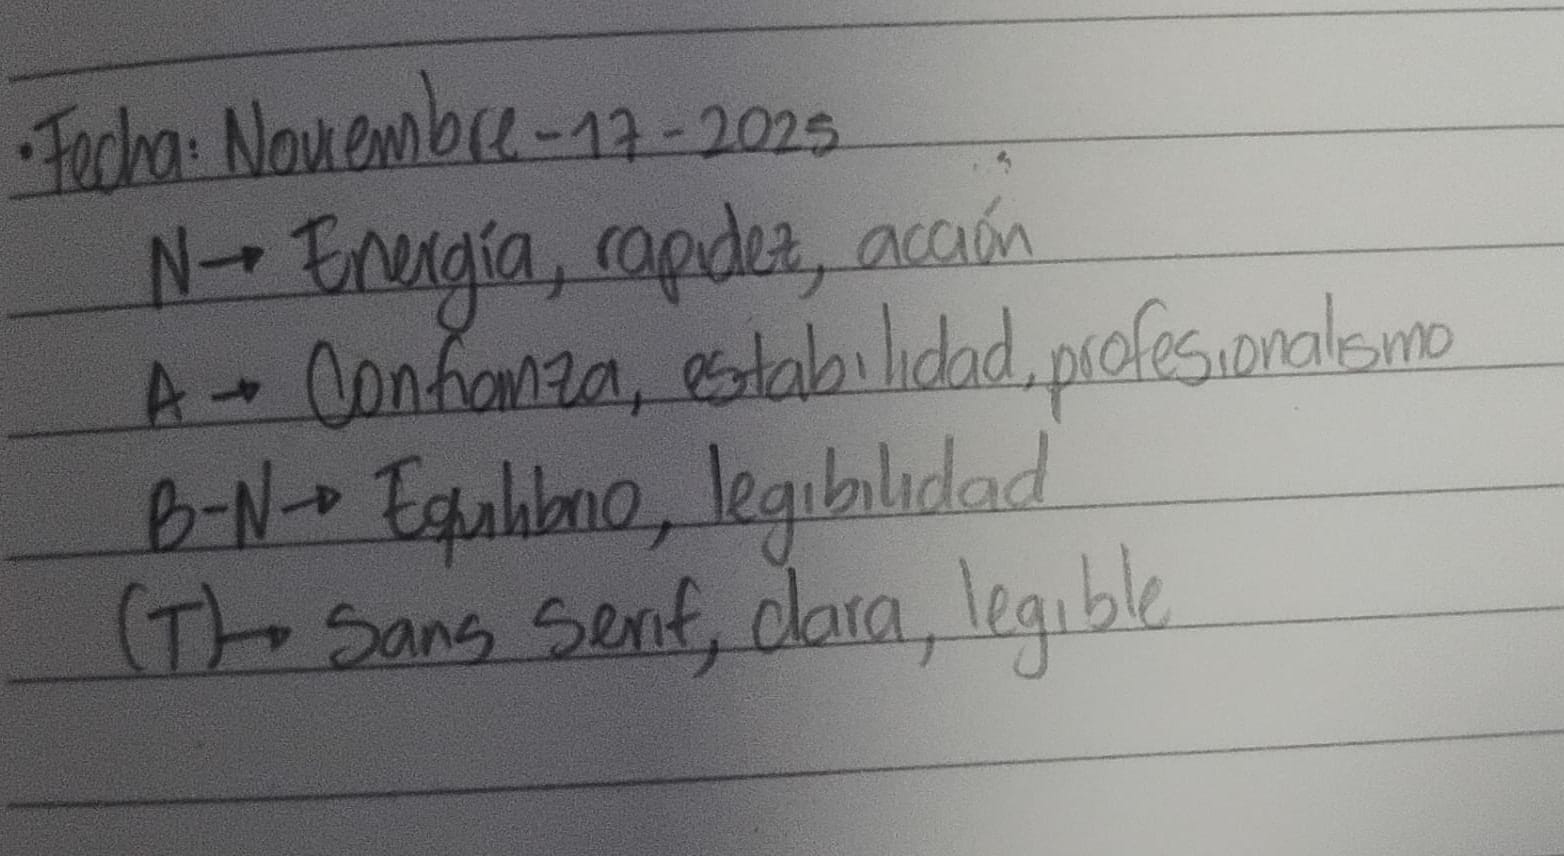 ·Fecha: Noviembre-17-2025
N→ Energía, rapidez, acción
A→ Confianza, estabilidad, profesionalismo
B-N→ Equilibrio, legibilidad
(T)→ Sans Serif, clara, legible